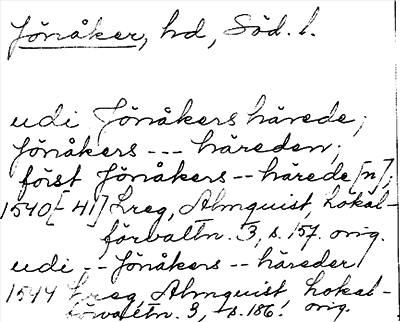 Jönåker, hd, Söd. l.
udi Jönåkers härede;
Jönåkers --- häreden;
först Jönåkers -- härede[n];
1540[-41] Lreg, Almquist, Lokal-
förvaltn. 3, s. 157. orig.
udi -- Jönåkers -- häreder
1544 Lreg, Almquist Lokal-
förvaltn. 3, s. 186. orig.